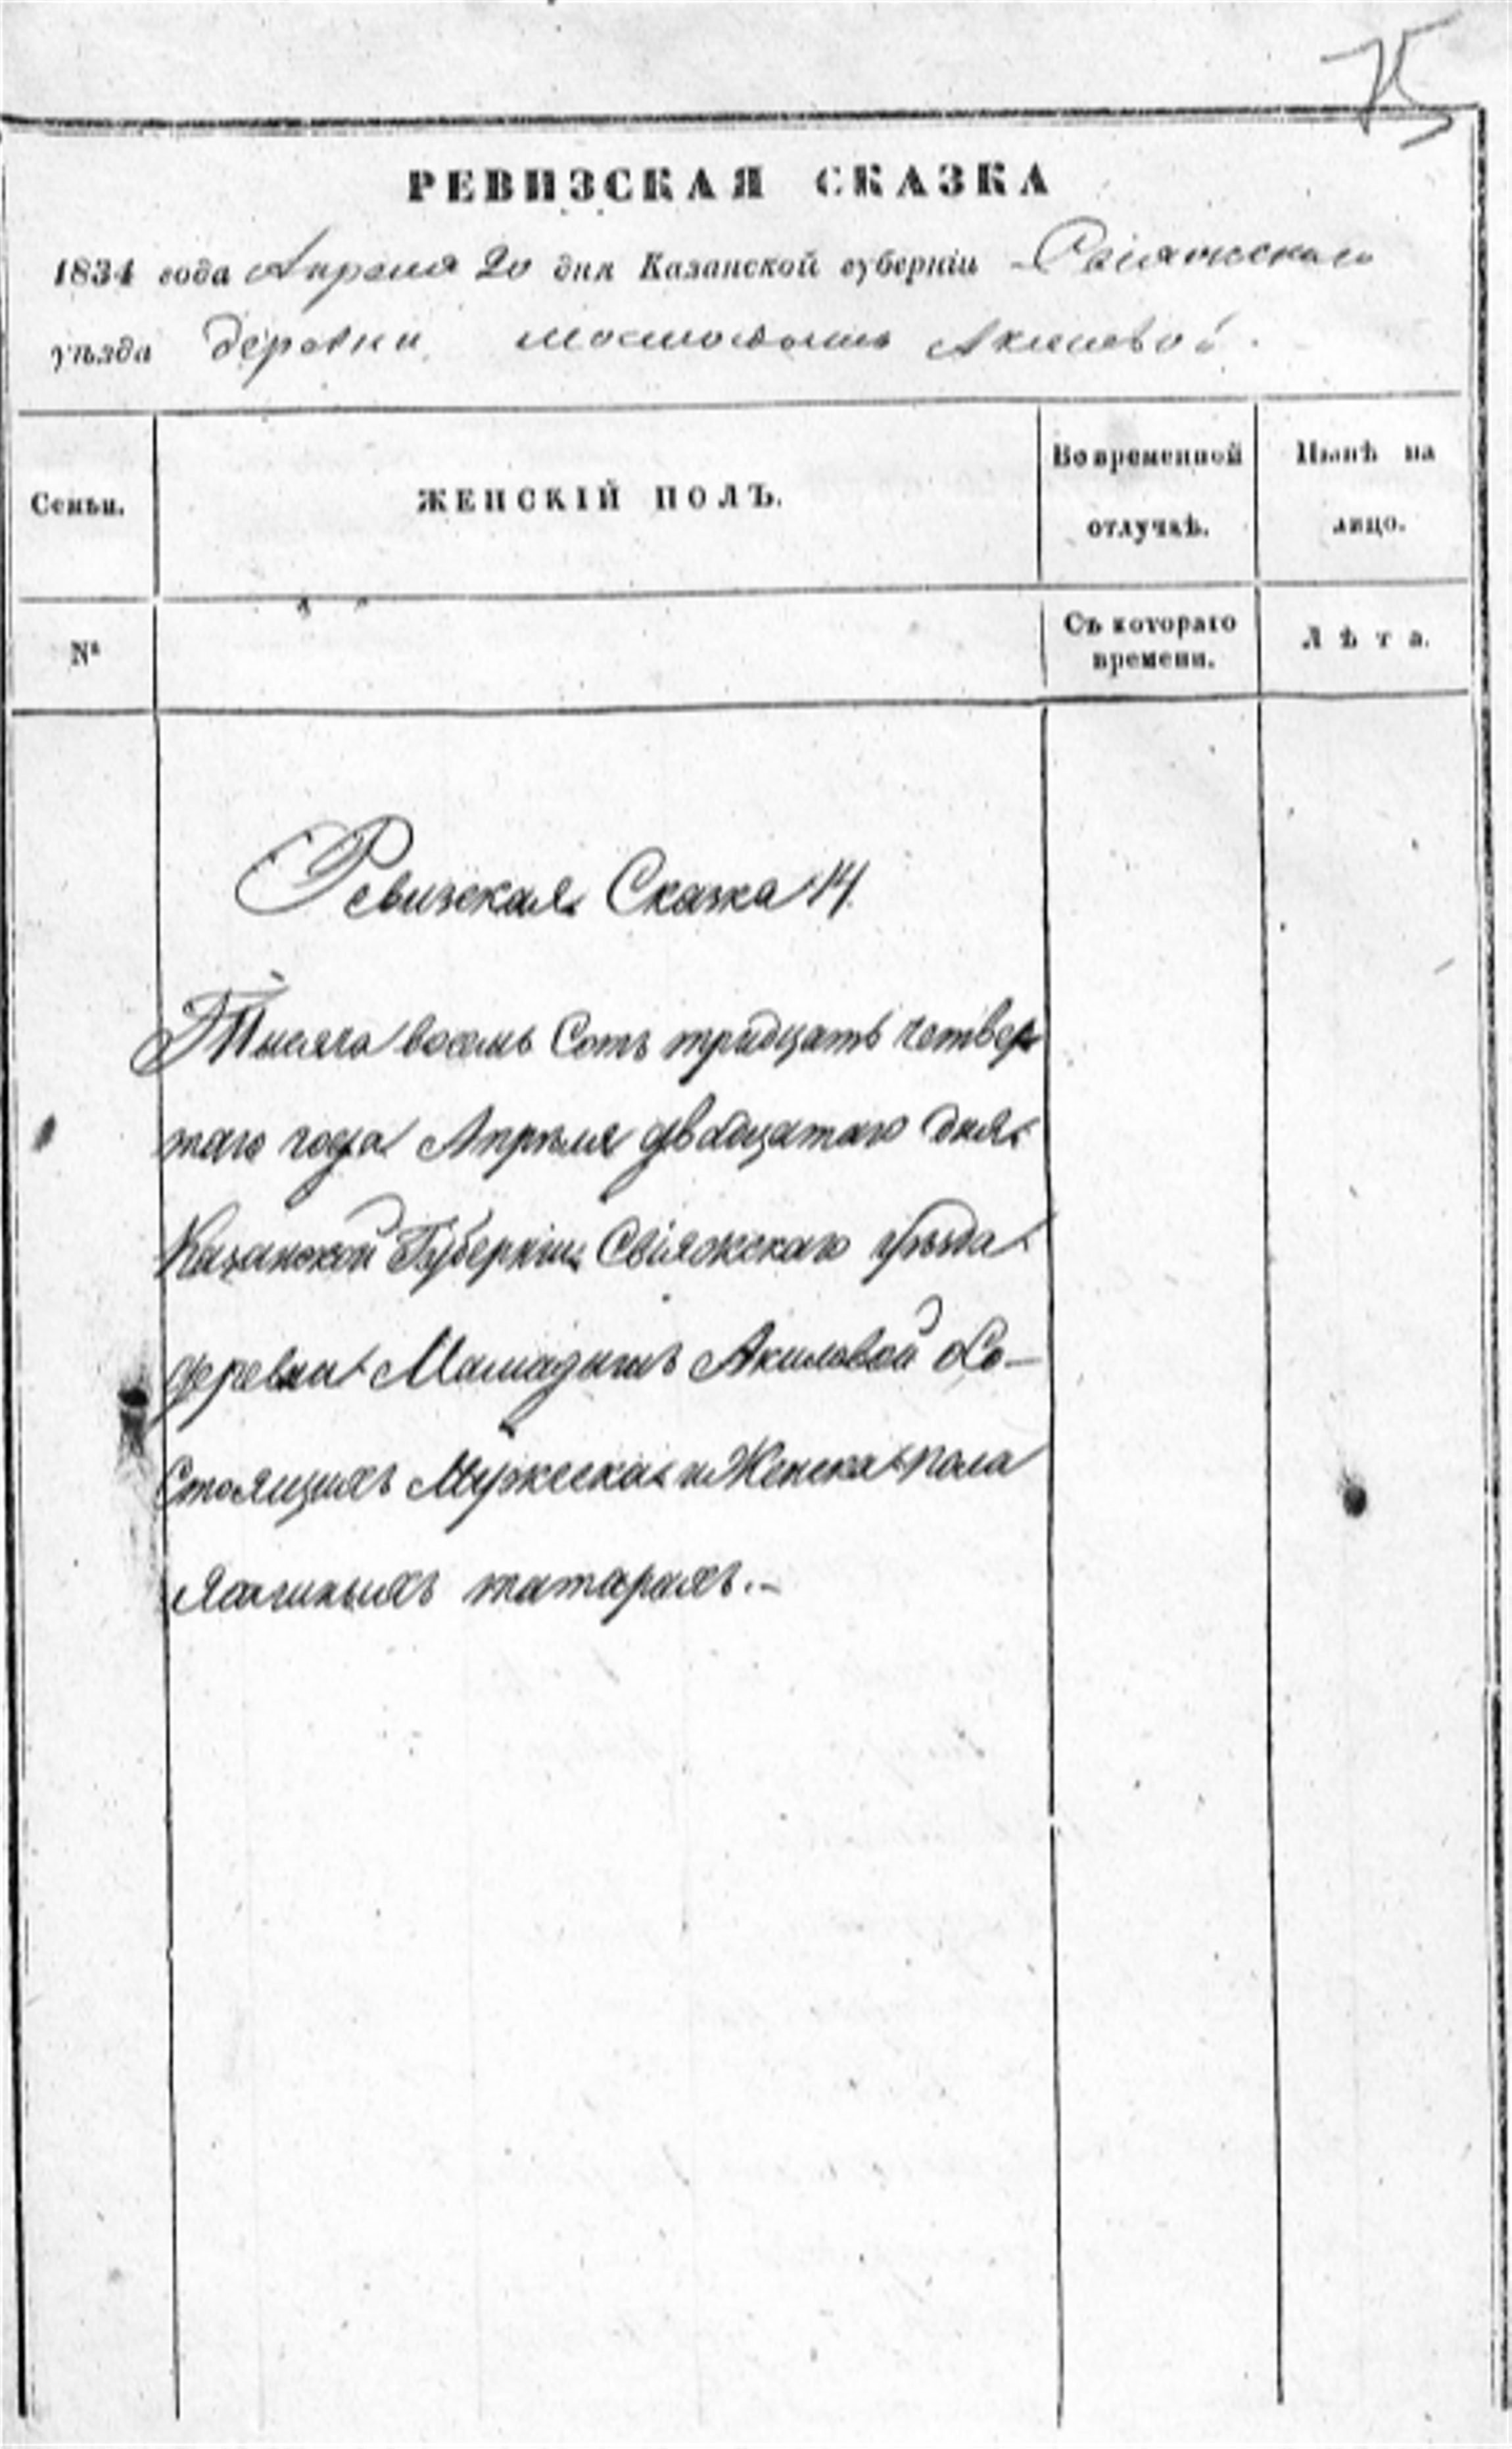 75
РЕВИЗСКАЯ СКАЗКА
1834 года Апреля 20 дня Казанской губерніи Свіяжскаго
уѣзда деревни Акилевой.
Семьи.
ЖЕНСКІЙ ПОЛЪ.
Во временной
отлучкѣ.
Нынѣ на
лицо.
№
Съ котораго
времени.
Лѣта.
Ревизская Сказка 14.
Тысяча восемь Сотъ тридцать четвер
таго года Апрѣля двадцатаго дня
Казанской Губерніи Свіяжскаго уѣзда
деревни Акиловой Со-
Стоящихъ Мужеска и Женска пола
Ясашныхъ татарахъ.-